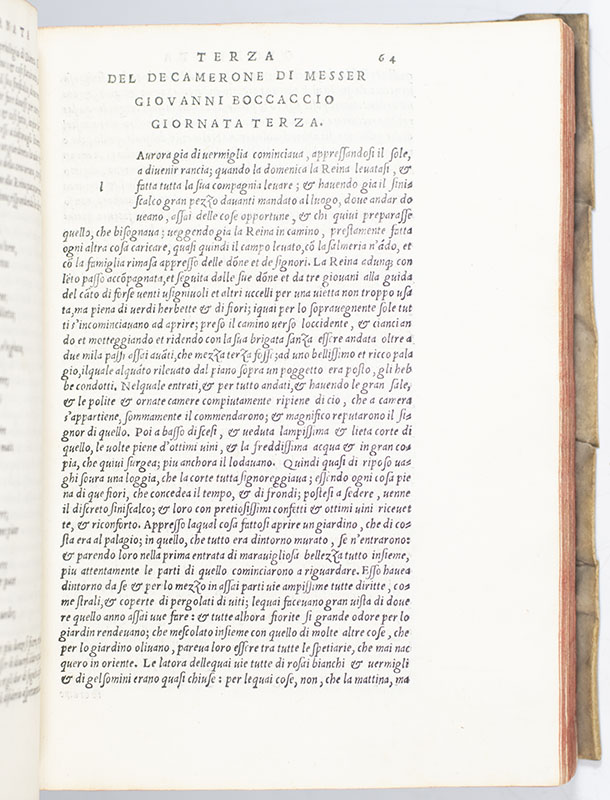 TERZA 64
DEL DECAMERONE DI MESSER
GIOVANNI BOCCACCIO
GIORNATA TERZA.
l Aurora gia di uermiglia cominciaua, appressandosi il sole,
a diuenir rancia; quando la domenica la Reina leuatasi, &
fatta tutta la sua compagnia leuare; & hauendo gia il sini
scalco gran pezzo dauanti mandato al luogo, doue andar do
ueano, assai delle cose opportune, & chi quiui preparasse
quello, che bisognaua; ueggendo gia la Reina in camino, prestamente fatta
ogni altra cosa caricare, quasi quindi il campo leuato, cõ la salmeria n'ãdo, et
cõ la famiglia rimasa appresso delle dõne et de signori. La Reina adunq; con
lẽto passo accõpagnata, et seguita dalle sue dõne et da tre giouani alla guida
del cãto di forse uenti usignuoli et altri uccelli per una uietta non troppo usa
ta, ma piena di uerdi herbette & di fiori; iquai per lo soprauegnente sole tut
ti s'incominciauano ad aprire; preso il camino uerso loccidente, & ciancian
do et motteggiando et ridendo con la sua brigata sanza essere andata oltre a
due mila passi assai auãti, che mezza terza fosse; ad uno bellissimo et ricco pala
gio, ilquale alquãto rileuato dal piano sopra un poggetto era posto, gli heb
be condotti. Nelquale entrati, & per tutto andati, & hauendo le gran sale,
& le polite & ornate camere compiutamente ripiene di cio, che a camera
s'appartiene, sommamente il commendarono; & magnifico reputarono il si
gnor di quello. Poi a basso discesi, & ueduta lampissima & lieta corte di
quello, le uolte piene d'ottimi uini, & la freddissima acqua & in gran co
pia, che quiui surgea; piu anchora il lodauano. Quindi quasi di riposo ua
ghi soura una loggia, che la corte tutta signoreggiaua; essendo ogni cosa pie
na di que fiori, che concedea il tempo, & di frondi; postesi a sedere, uenne
il discreto siniscalco; & loro con pretiosissimi confetti & ottimi uini riceuet
te, & riconforto. Appresso laqual cosa fattosi aprire un giardino, che di co
sta era al palagio; in quello, che tutto era dintorno murato, se n'entrarono:
& parendo loro nella prima entrata di marauigliosa bellezza tutto insieme,
piu attentamente le parti di quello cominciarono a riguardare. Esso hauea
dintorno da se & per lo mezzo in assai parti uie ampissime tutte diritte, co
me strali, & coperte di pergolati di uiti; lequai faceuano gran uista di doue
re quello anno assai uue fare: & tutte alhora fiorite si grande odore per lo
giardin rendeuano; che mescolato insieme con quello di molte altre cose, che
per lo giardino oliuano, pareua loro essere tra tutte le spetiarie, che mai nac
quero in oriente. Le latora dellequai uie tutte di rosai bianchi & uermigli
& di gelsomini erano quasi chiuse: per lequai cose, non, che la mattina, ma